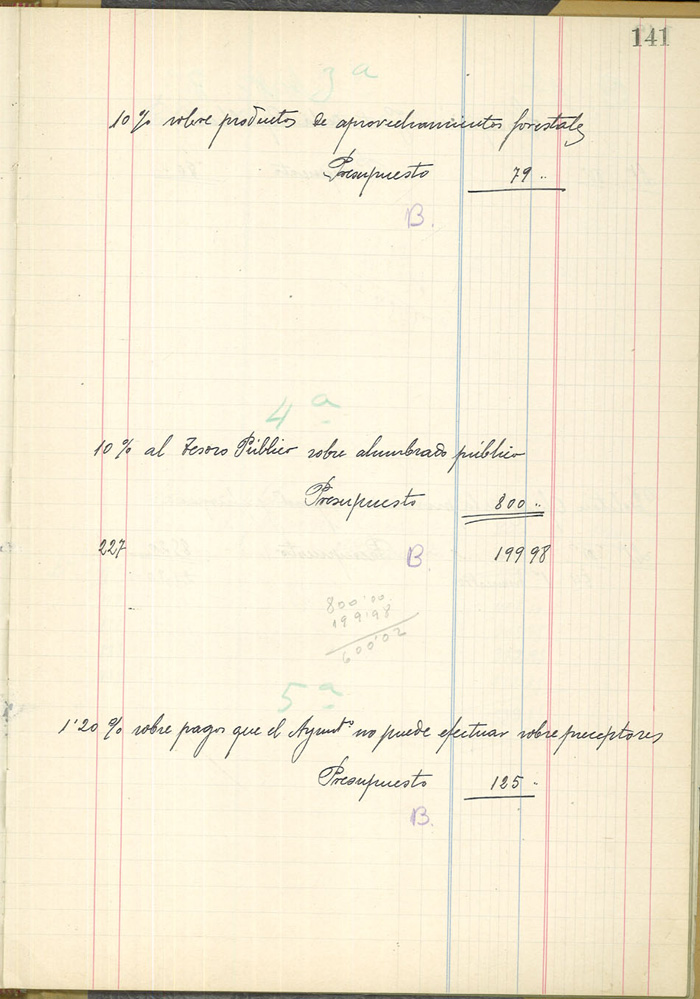 141
3ª
10% sobre productos de aprovechamientos forestales
Presupuesto 79 ..
B.
4ª
10% al Tesoro Público sobre alumbrado público
Presupuesto 800 ..
227 B. 199 98
800'00
199'98
600'02
5ª
1'20 % sobre pagos que el Ayuntº no puede efectuar sobre preceptores
Presupuesto 125 ..
B.